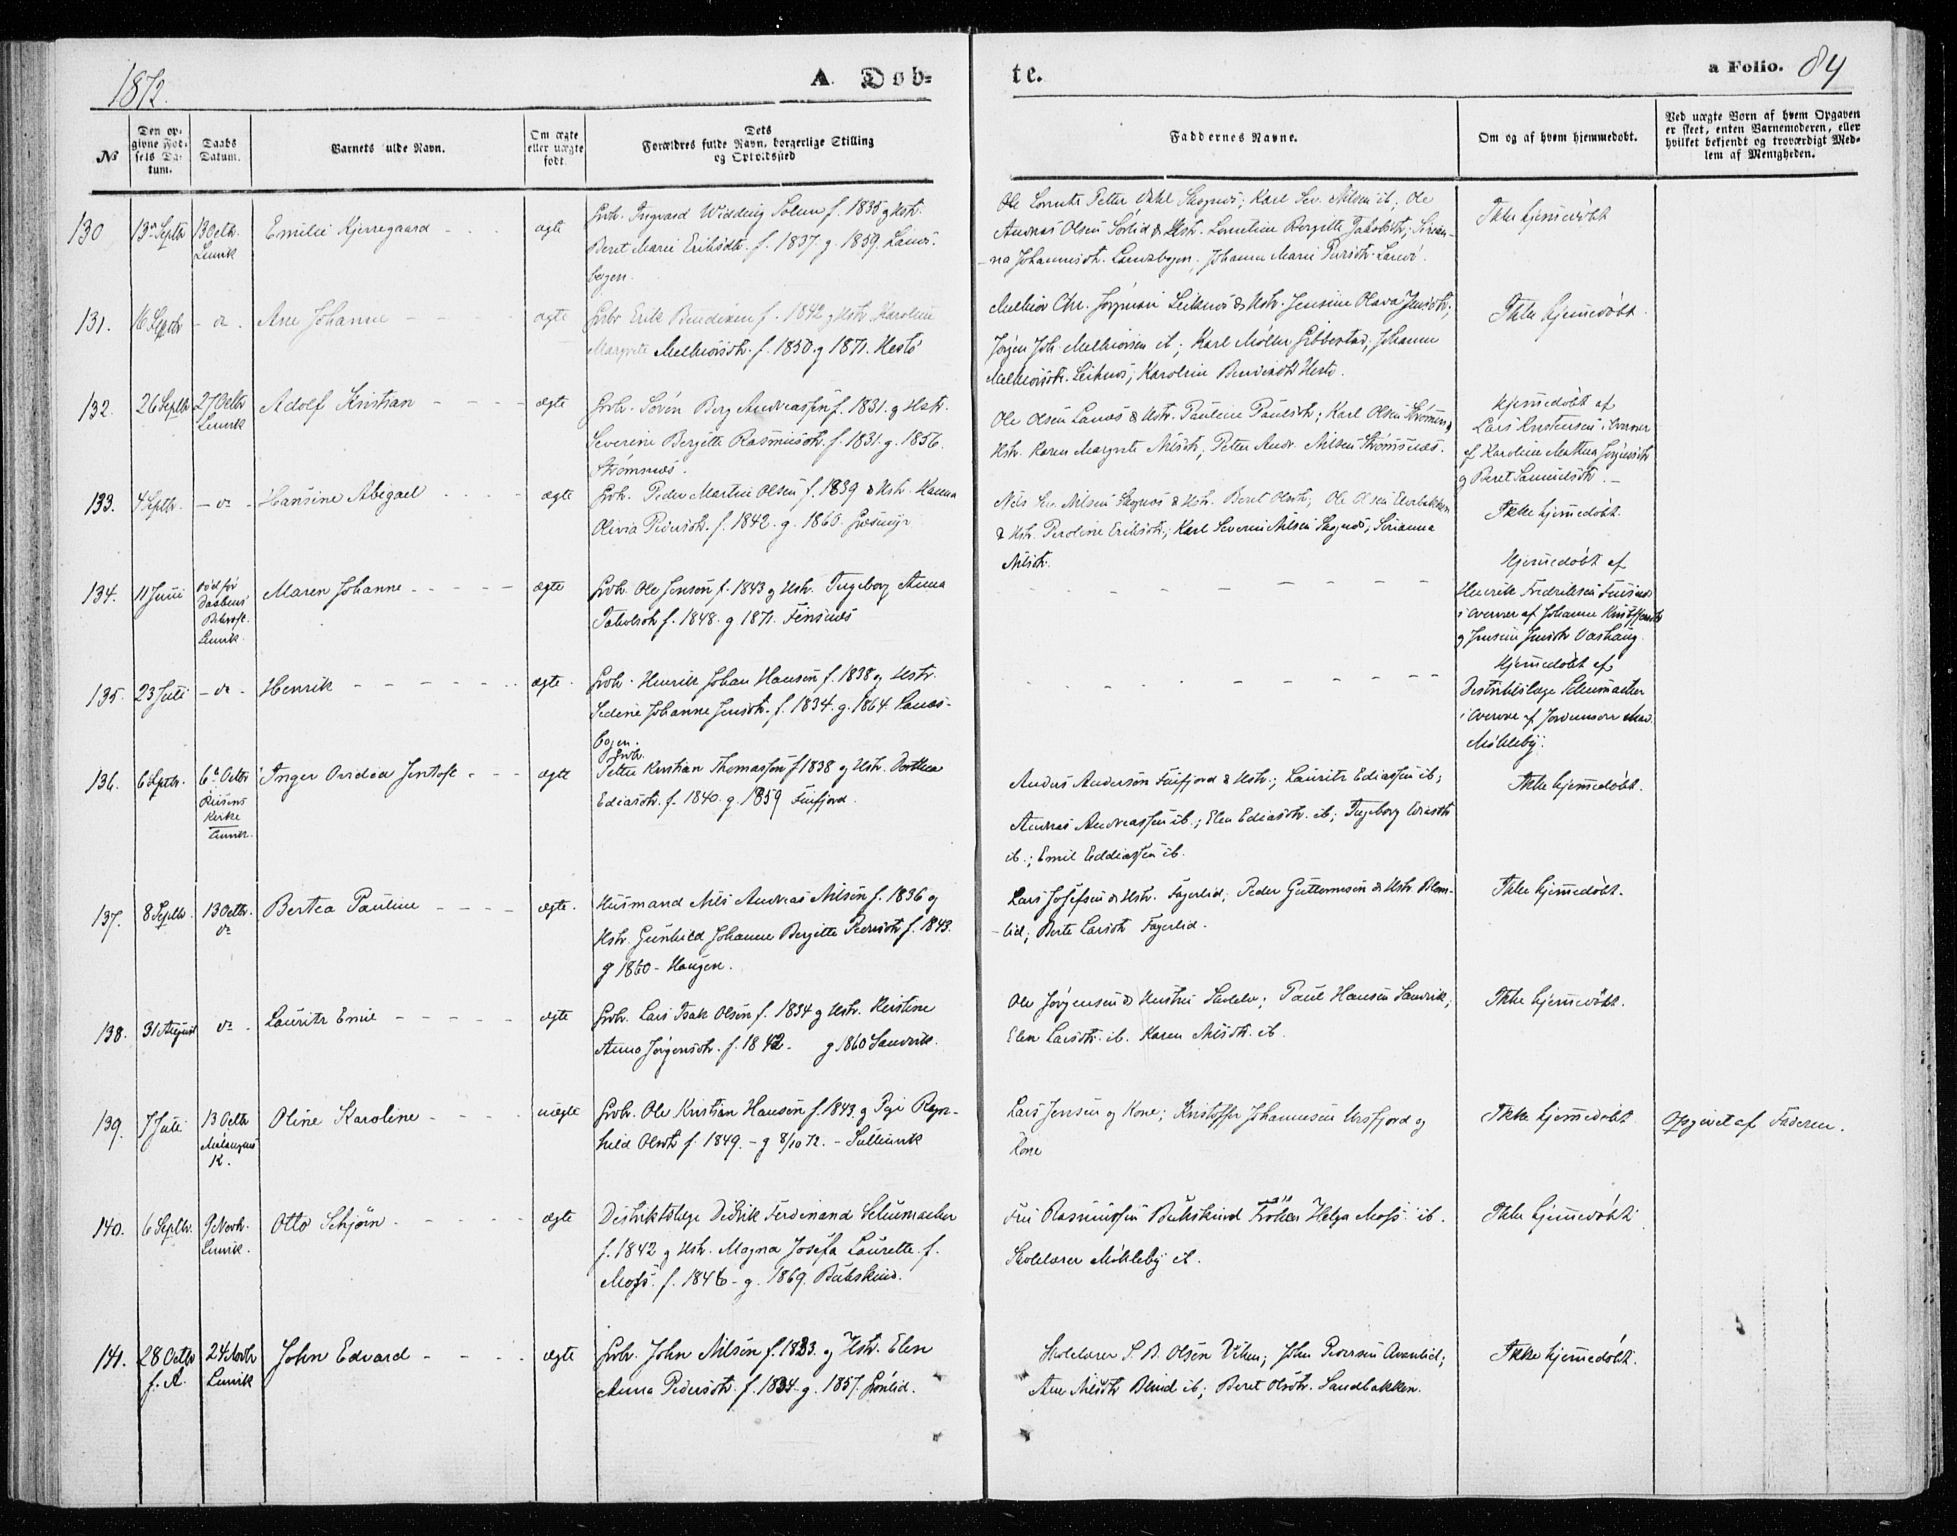 1872.
A. Døb-
te.
a Folio. 84
No
Den op-
givne Fød-
sels Da-
tum.
Daabs
Datum.
Barnets fulde Navn.
Om ægte
eller uægte
født.
Dets
Forældres fulde Navn, borgerlige Stilling
og Opholdssted
Faddernes Navne.
Om og af hvem hjemmedøbt.
Ved uægte Born af hvem Opgaven
er skeet, enten Barnemoderen, eller
hvilket bekjendt og troværdigt Med-
lem af Menigheden.
130 13de Septbr 13 Octbr.
Lenvik
Emilie Kjerregaard - - - ægte
Grbr. Ingvard Widding Solem f. 1835 g Hstr.
Beret Marie Eriksdtr. f. 1837. g. 1859. Lanæs-
bogen.
Ole Lorents Petter Dahl Skognæs; Karl Sev. Nilsen ib; Ole
Andreas Olsen Sørlid & Hstr. Lorentine Bergitte Jakobsdtr;
-na Johannesdtr. Lanæsbogen; Johanna Marie Pedersdtr. Lanæs.
Ikke hjemmedøbt
131. 16 Septbr - do - Ane Johanne - - - - ægte
Grbr Erik Bendixen f. 1842 g Hstr Karoline
Margrete Melkiorsdtr. f. 1850. g 1871. Hestø
Melkior Chr. Jørgensen Leiknæs & Hstr. Jensine Olava Jensdtr;
Jørgen Joh. Melkiorsen ib; Karl Møller Gibbostad; Johanna
Melkiorsdtr. Leiknæs; Karoline Bendixdtr Hestø.
Ikke hjemmedøbt.
132. 26 Septbr 27 Octbr
Lenvik
Adolf Kristian - - - - ægte
Grbr. Søren Berg Andreassen f. 1831. g Hstr.
Severine Bergitte Rasmusdtr. f. 1831. g. 1856.
Strømnæs.
Ole Olsen Lanæs & Hstr. Pauline Paulsdtr; Karl Olsen Strømnæs &
Hstr. Karen Margrete Nilsdtr; Petter Andr. Nilsen Strømsnæs.
Hjemmedøbt af
Lars Kristensen i Overvær
af Karoline Mathea Jørgensdtr
g Beret Samuelsdtr. -
133. 4 Septbr. - do - Hansine Abegael - - - - ægte
Grbr. Peder Martin Olsen f. 1839 & Hstr. Hanna
Olivia Pedersdtr. f. 1842. g. 1860.
Nils Sev. Nilsen Skognæs & Hstr. Beret Olsdtr; Ole Olsen
& Hstr. Peroline Eriksdtr; Karl Severin Nilsen Skognæs; Serianna
Nilsdtr.
Ikke hjemmedøbt.
134. 11 Juni død før
Daabens
Lenvik
Maren Johanne - - - - - ægte
Grbr. Ole Jenson f. 1843 g Hstr. Ingeborg Anna
Jakobsdtr f. 1848. g 1871. Finsnæs
Hjemmedøbt af
Henrik Fredriksen Finsnæs
i Overvær af Johanna
g Jensine Jensdtr
135. 23 Juli - do - Henrik - - - - - - ægte.
Grbr. Henrik Johan Hansen f. 1838 g Hstr.
Sedine Johanne Jensdtr. f. 1834. g. 1864. Lanæs-
bogen.
Hjemmedøbt af
Distriktslæge Schumacher
i Overvær af Jordemoder Mad.
Møkleby.
136. 6 Septbr. 6te Octbr
Reisens
Kirke
Inger Ovidea Jentoft - - - ægte
Grbr.
Petter Kristian Thomassen f 1838 g Hstr. Dorthea
Ediasdtr. f. 1840. g. 1859 Finfjord.
Anders Andersen Finfjord & Hstr.; Laurits Ediassen ib;
Andreas Andreassen ib.; Elen Ediasdtr. ib; Ingeborg
ib.; Emil Eddiassen ib.
Ikke hjemmedøbt.
137. 8 Septbr. 13 Octbr.
do
Bertea Pauline - - - - ægte.
Husmand Nils Andreas Nilsen f. 1836 g
Hstr. Gunhild Johanne Bergitte Pedersdtr f. 1843.
g 1860 - Haugen.
Lars Josefsen & Hstr. Fagerlid; Peder Guttormsen & Hstr. Blom-
-lid; Berte Larsdtr Fagerlid.
Ikke hjemmedøbt.
138. 31 August do - Laurits Emil - - - - - ægte
Grbr. Lars Isak Olsen f. 1834 g Hstr. Kirstine
Anna Jørgensdtr. f. 1842 - g 1860 Sandvik.
Ole Jørgensen & Hustru ; Paul Hansen Sandvik;
Elen Larsdtr. ib. Karen Nilsdtr. ib.
Ikke hjemmedøbt.
139. 7 Juli 13 Octbr
Malangens
K.
Oline Karoline - - - - uægte
Grbr. Ole Kristian Hansen f. 1843 g Pige Ragn-
hild Olsdtr f. 1849. - g 8/10 72. - Sultinvik
Lars Jensen og Kone; Kristoffer Johannesen Ersfjord og
Kone
Ikke hjemmedøbt
Opgivet af Faderen.
140. 6 Septbr. 9 Novbr.
Lenvik.
Otto Schjørn - - - - - ægte
Distriktslæge Didrik Ferdinand Schumacher
f. 1842 g Hstr. Magna Josefa Laurette f.
Moss. f. 1846 - g. 1869. Bukskind.
Fru Rasmussen Bukskind Frøken Helga Moss ib.
Skolelærer Møkleby ib.
Ikke hjemmedøbt
141. 28 Octbr
f. A.
24 Novbr
Lenvik
John Edvard - - - - ægte
Grbr. John Nilsen f. 1833. g Hstr. Elen
Anna Pedersdtr. f. 1834 g. 1857. Grønlid.
Skolelærer S. B. Olsen Viken; John Pedersen Aspenlid;
Ane Nilsdtr Blind ib; Beret Olsdtr. Sandbakken.
Ikke hjemmedøbt.